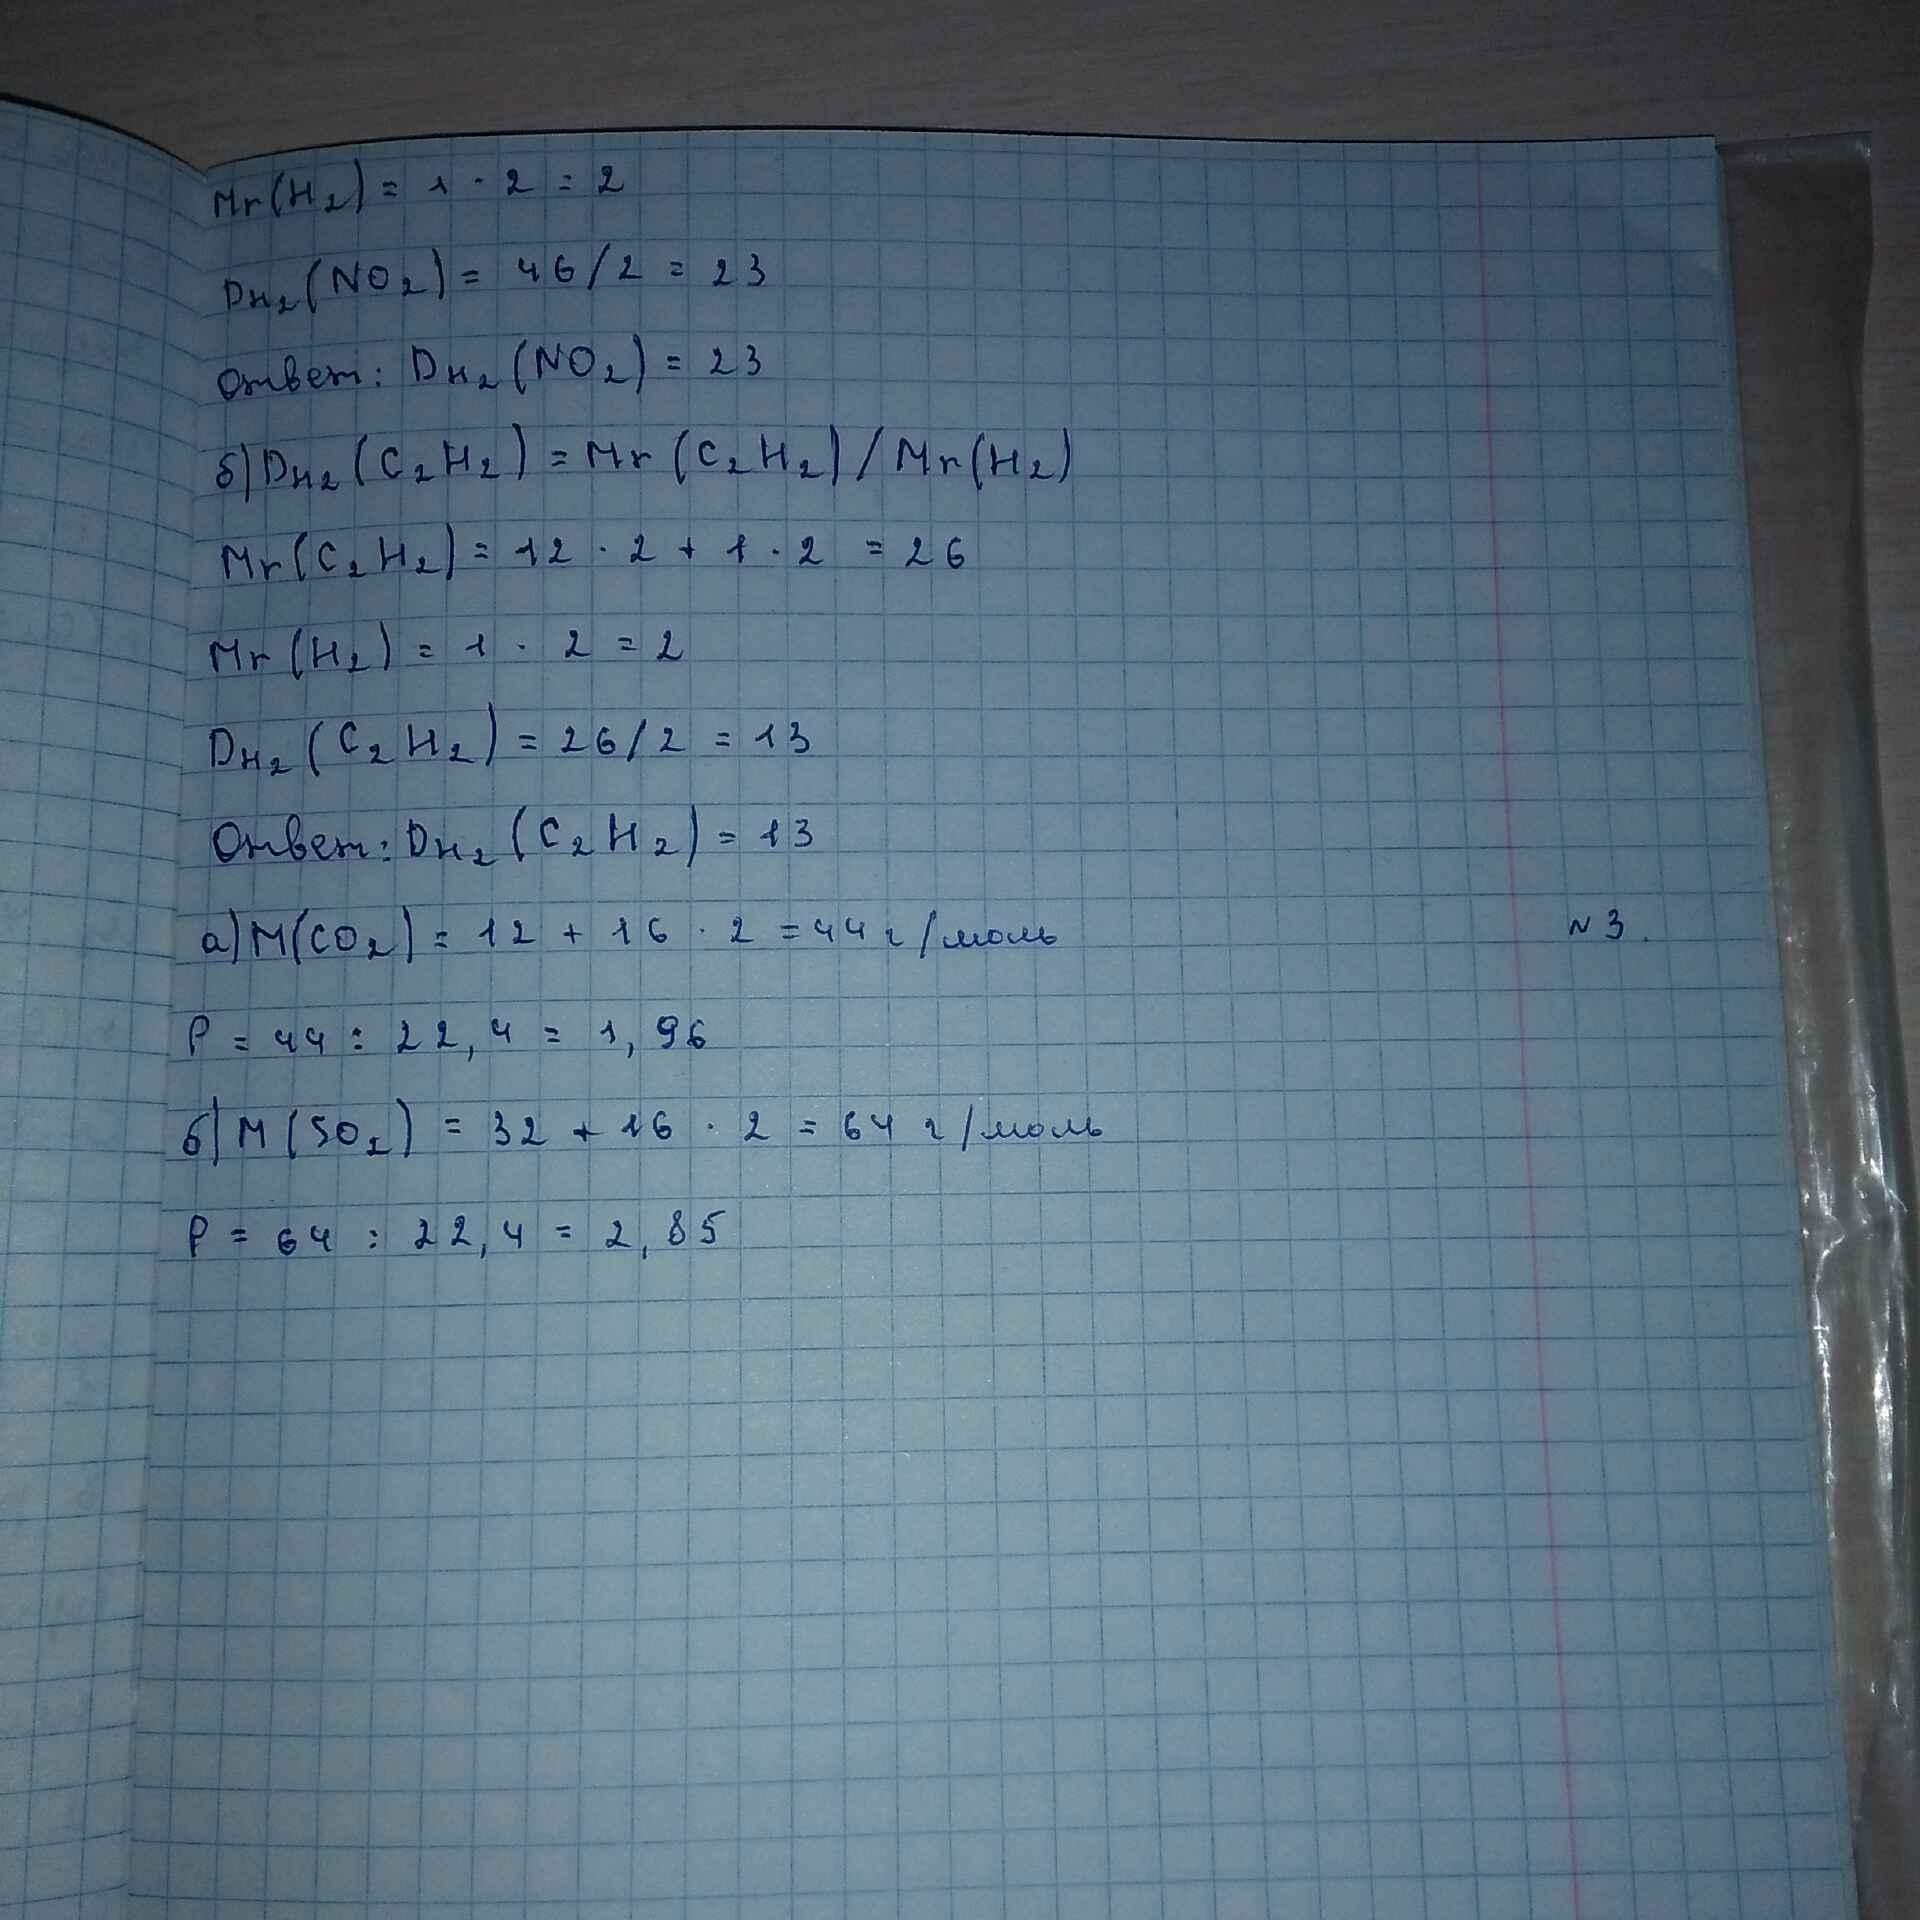 Mr(H₂) = 1 · 2 = 2
DH₂(NO₂) = 46/2 = 23
Ответ: DH₂(NO₂) = 23
б) DH₂(C₂H₂) = Mr(C₂H₂)/Mr(H₂)
Mr(C₂H₂) = 12 · 2 + 1 · 2 = 26
Mr(H₂) = 1 · 2 = 2
DH₂(C₂H₂) = 26/2 = 13
Ответ: DH₂(C₂H₂) = 13
а) M(CO₂) = 12 + 16 · 2 = 44 г/моль N3.
P = 44 : 22,4 = 1,96
б) M(SO₂) = 32 + 16 · 2 = 64 г/моль
P = 64 : 22,4 = 2,85